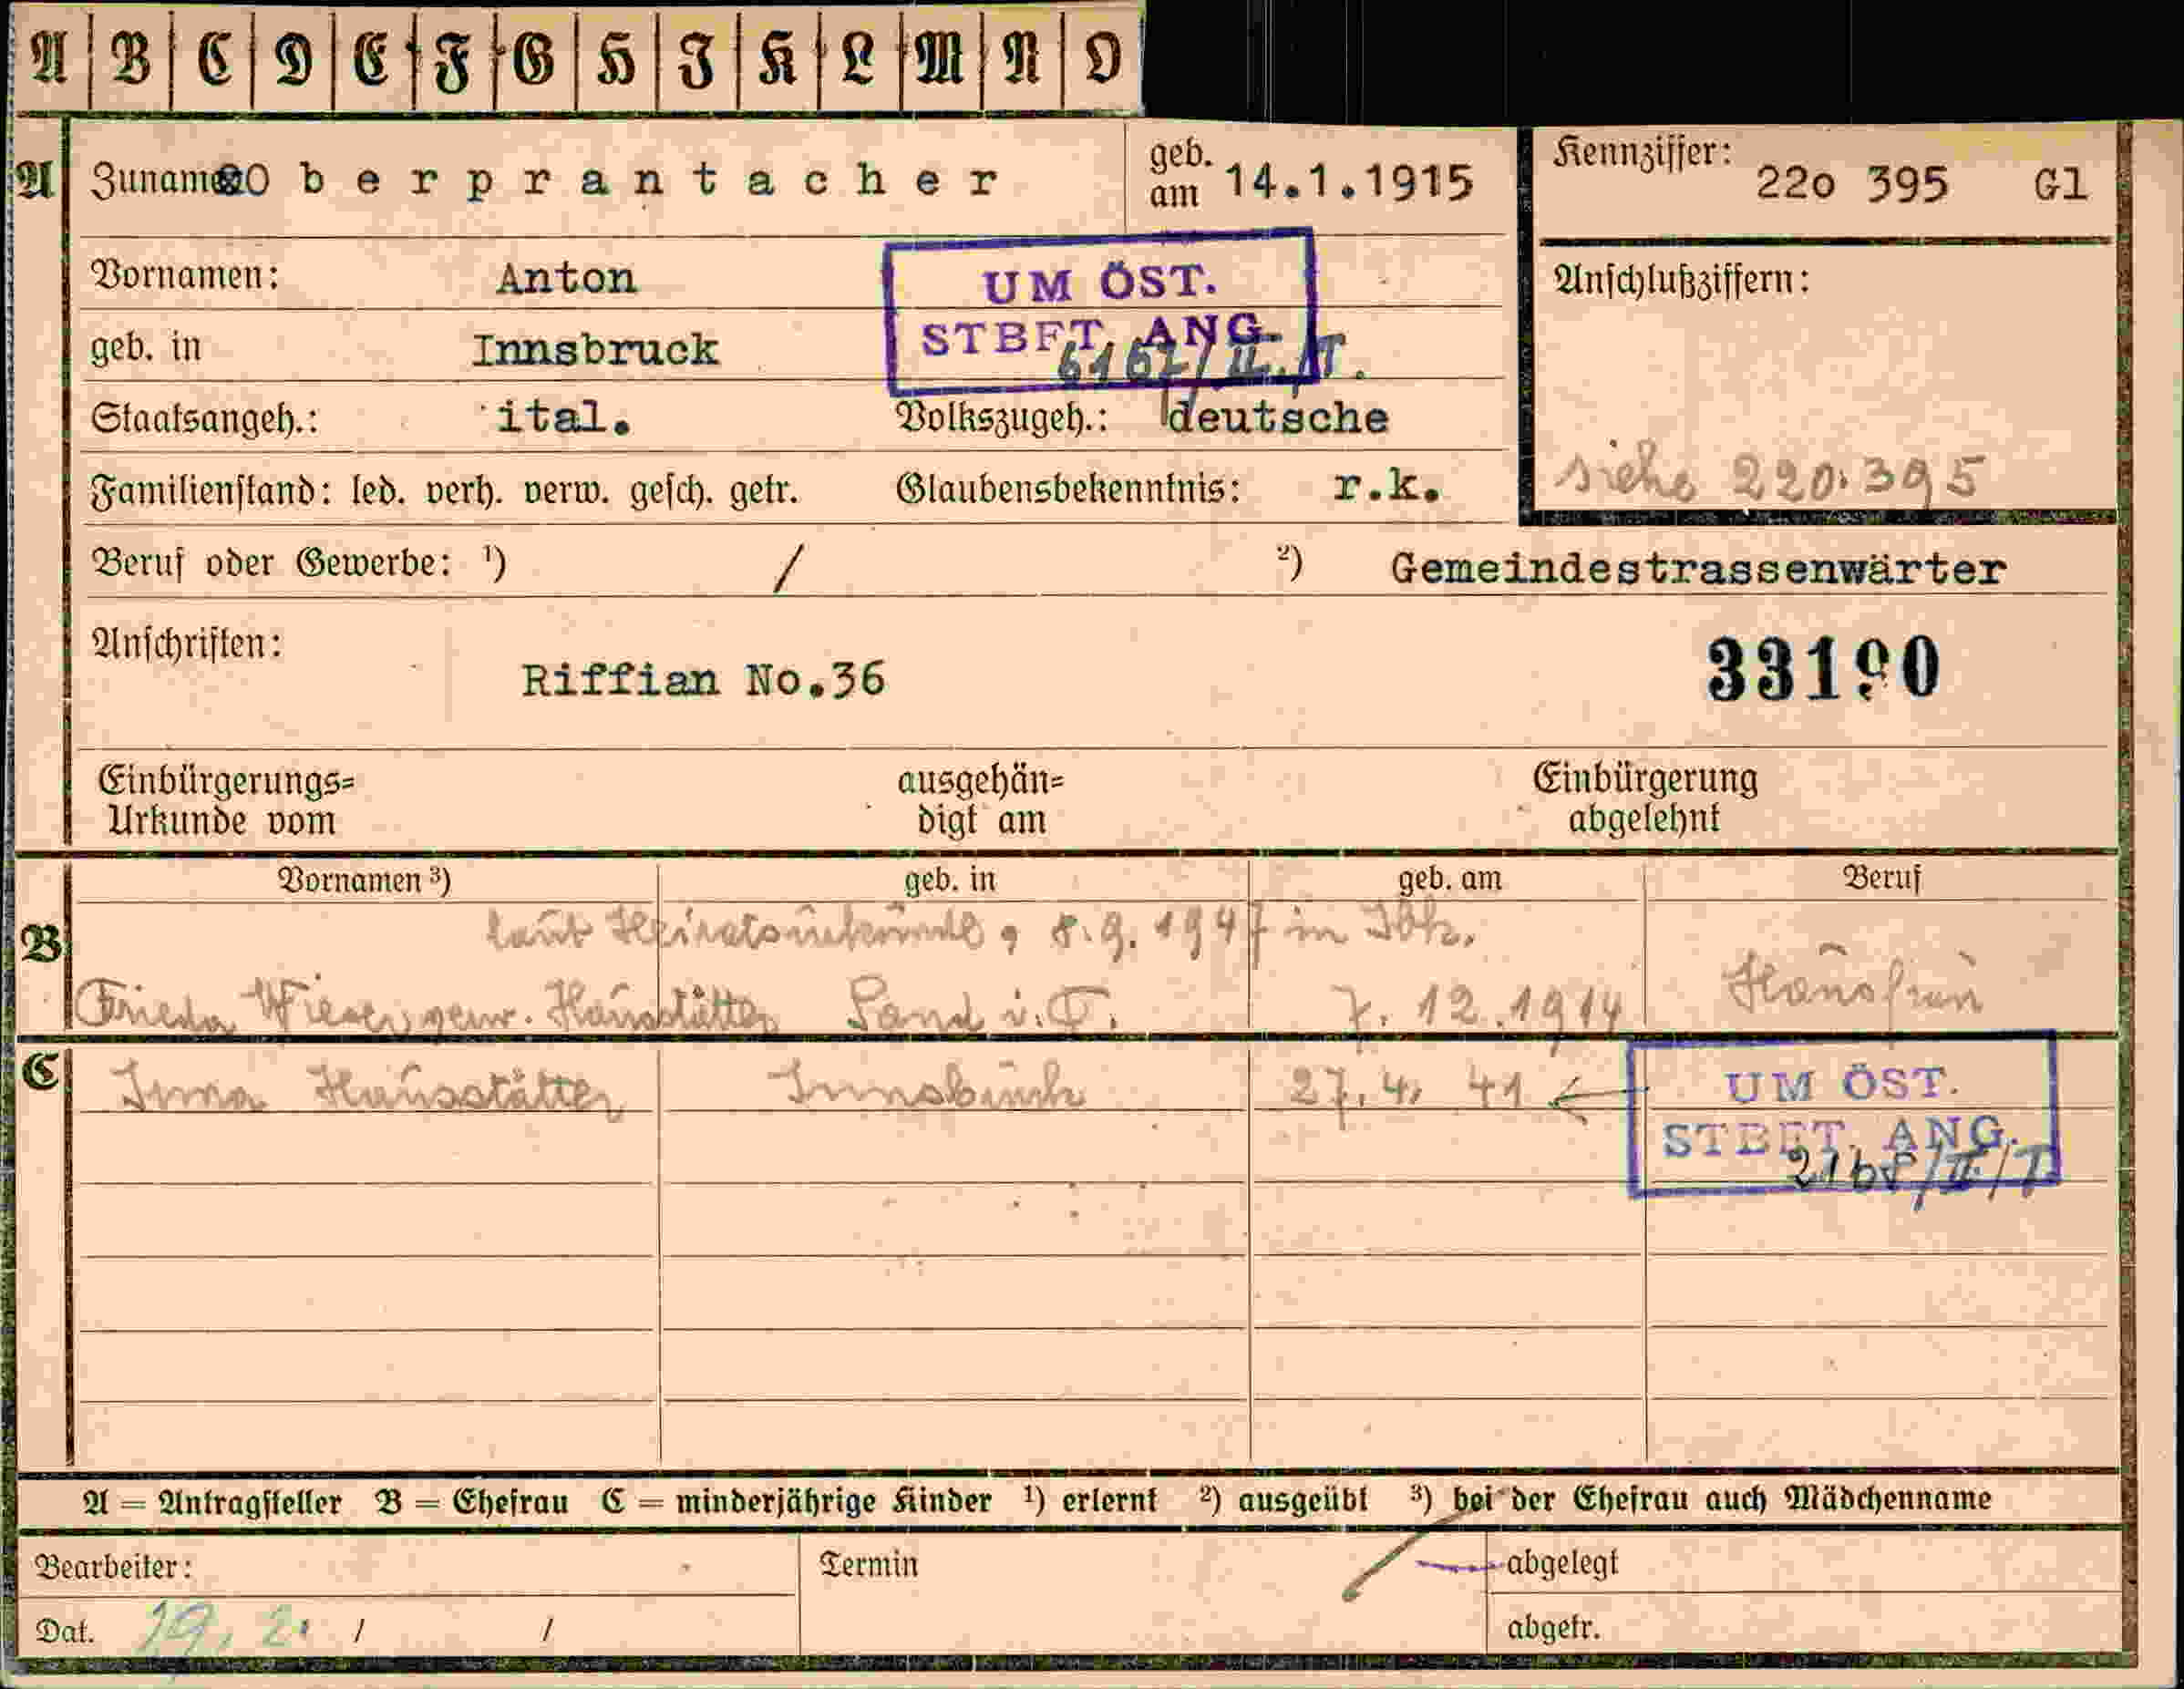 A B C D E F G H I K L M N O
A Zuname Oberprantacher geb. am 14.1.1915 Kennziffer: 22o 395 Gl
Vornamen: Anton
UM ÖST.
STBET. ANG.
6167/II./T.
Anschlußziffern:
geb. in Innsbruck
Staatsangeh.: ital. Volkszugeh.: deutsche
siehe 220.395
Familienstand: led. verh. verw. gesch. getr. Glaubensbekenntnis: r.k.
Beruf oder Gewerbe: ¹) / ²) Gemeindestrassenwärter
Anschriften:
Riffian No.36
33190
Einbürgerungs= ausgehän= Einbürgerung
Urkunde vom digt am abgelehnt
Vornamen ³) geb. in geb. am Beruf
B laut Heiratsurkunde, 8.9.1947 in Ibk.
Frieda Wieser, gew. Hausstätter Sand i.T. 7.12.1914 Hausfrau
C Irma Hausstätter Innsbruck 27.4.41
UM ÖST.
STBET. ANG.
2168/II/T
A = Antragsteller B = Ehefrau C = minderjährige Kinder ¹) erlernt ²) ausgeübt ³) bei der Ehefrau auch Mädchenname
Bearbeiter: Termin abgelegt
Dat. 19.2. / / abgetr.